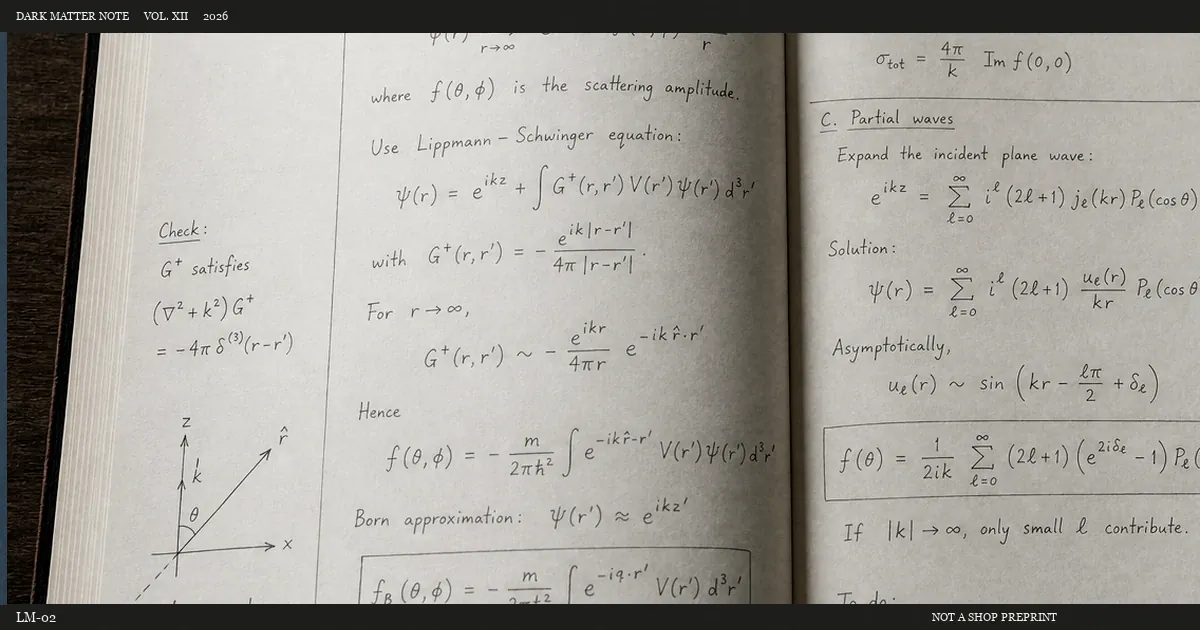 DARK MATTER NOTE VOL. XII 2026
r→∞
r
where f(θ, ϕ) is the scattering amplitude.
Use Lippmann – Schwinger equation:
ψ(r) = e^{ikz} + ∫ G⁺(r, r′) V(r′) ψ(r′) d³r′
with G⁺(r, r′) = − e^{ik|r−r′|} / 4π |r−r′| .
For r → ∞,
G⁺(r, r′) ~ − e^{ikr} / 4πr e^{−ik r̂·r′}
Hence
f(θ, ϕ) = − m / 2πħ² ∫ e^{−ik r̂−r′} V(r′) ψ(r′) d³r′
Born approximation: ψ(r′) ≈ e^{ikz′}
f_B (θ, ϕ) = − m / ∫ e^{−iq·r′} V(r′) d³r′
Check:
G⁺ satisfies
(∇² + k²) G⁺
= −4π δ⁽³⁾(r−r′)
z
r̂
k
θ
x
σ_tot = 4π / k Im f(0,0)
C. Partial waves
Expand the incident plane wave:
e^{ikz} = ∑_{ℓ=0}^{∞} i^ℓ (2ℓ+1) j_ℓ(kr) P_ℓ(cos θ)
Solution:
ψ(r) = ∑_{ℓ=0}^{∞} i^ℓ (2ℓ+1) u_ℓ(r) / kr P_ℓ(cos θ
Asymptotically,
u_ℓ(r) ~ sin (kr − ℓπ / 2 + δ_ℓ)
f(θ) = 1 / 2ik ∑_{ℓ=0}^{∞} (2ℓ+1) (e^{2iδ_ℓ} − 1) P_ℓ(
If |k| → ∞, only small ℓ contribute.
To do:
LM-02 NOT A SHOP PREPRINT